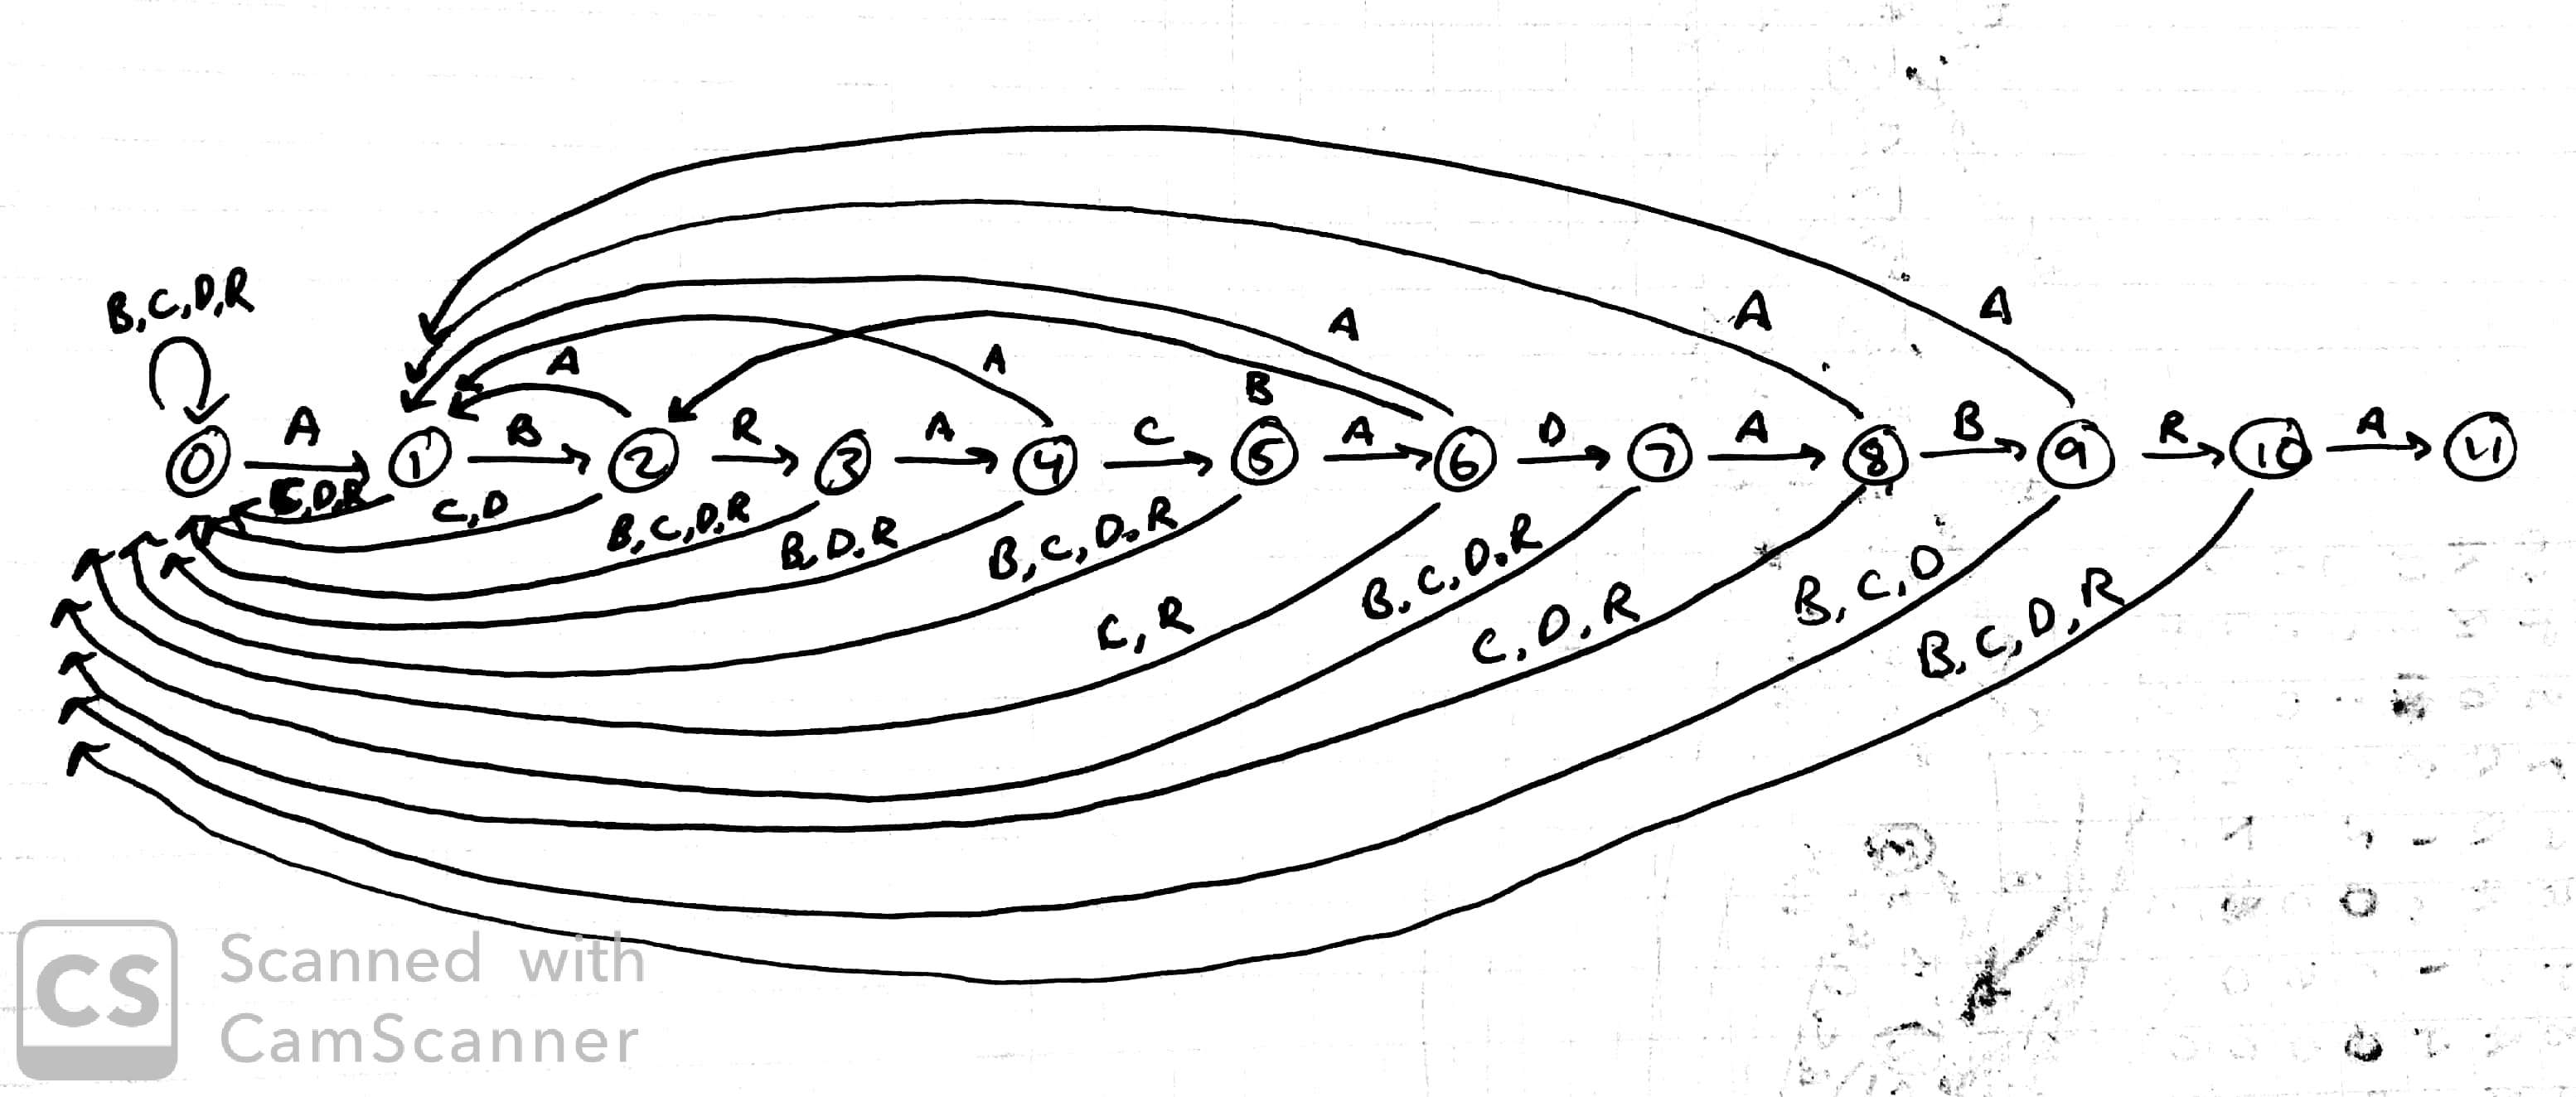 B,C,D,R
A
A
A
A
A
B
0 A 1 B 2 R 3 A 4 C 5 A 6 D 7 A 8 B 9 R 10 A 11
C,D,R
C,D
B,C,D,R
B,D,R
B,C,D,R
C,R
B,C,D,R
C,D,R
B,C,D
B,C,D,R
CS Scanned with
CamScanner